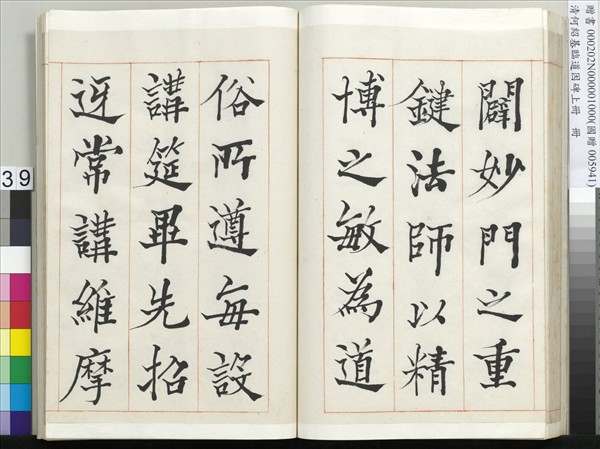 贈書 000202N000001000(國贈 005941)
清何紹基臨道因碑上冊 冊
闢妙門之重
鍵法師以精
博之敏為道
俗所遵每設
講筵畢先招
迓常講維摩
39